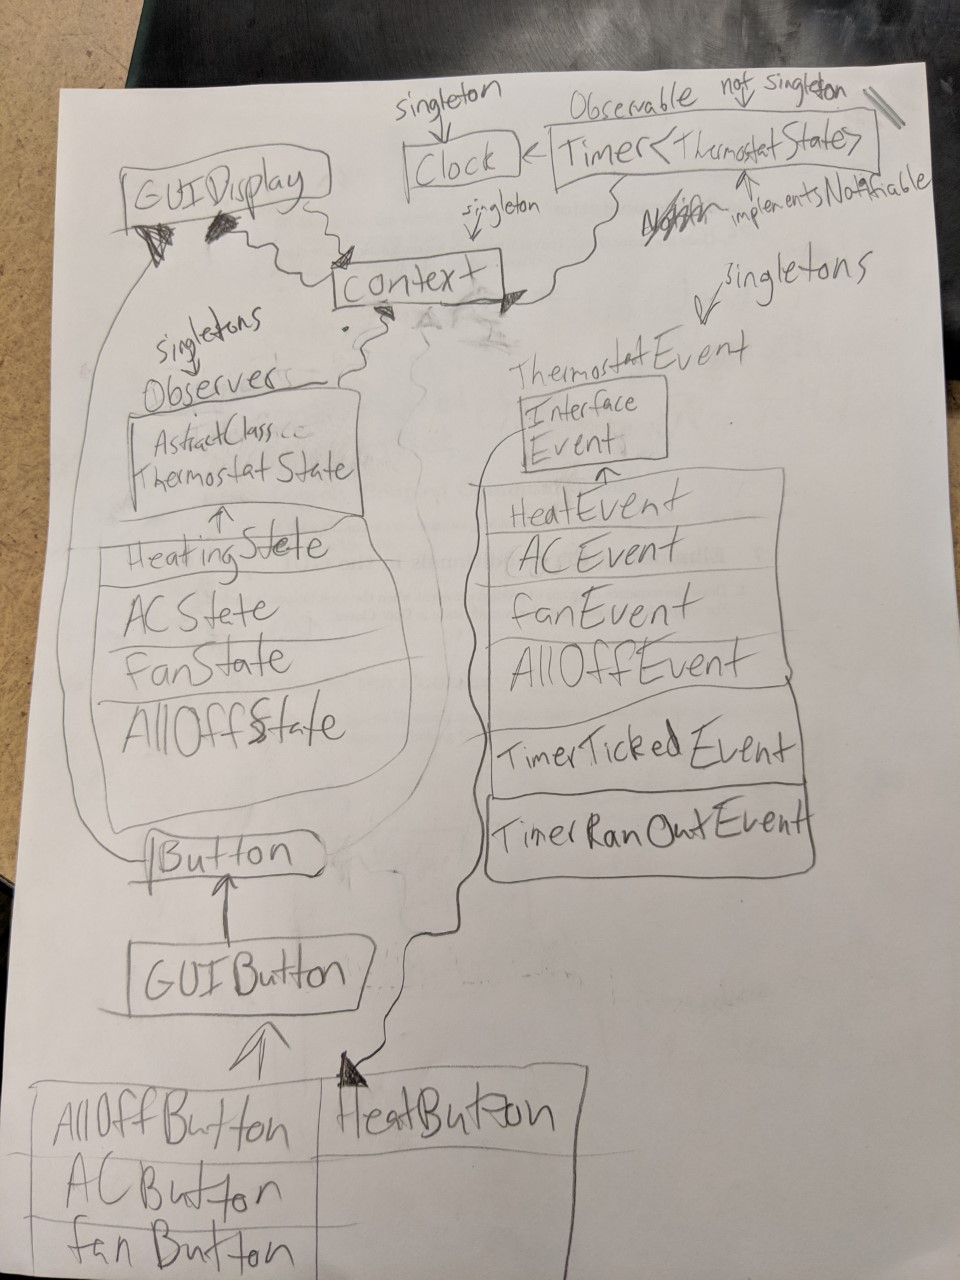 singleton
Observable not singleton
Clock
Timer<ThermostatState>
GUIDisplay
singleton
implementsNotifiable
context
singletons
singletons
Observer
ThermostatEvent
AstractClass
ThermostatState
Interface
Event
HeatingState
ACState
FanState
AllOffState
HeatEvent
ACEvent
fanEvent
AllOffEvent
TimerTickedEvent
TimerRanOutEvent
Button
GUIButton
AllOffButton
HeatButton
ACButton
fanButton